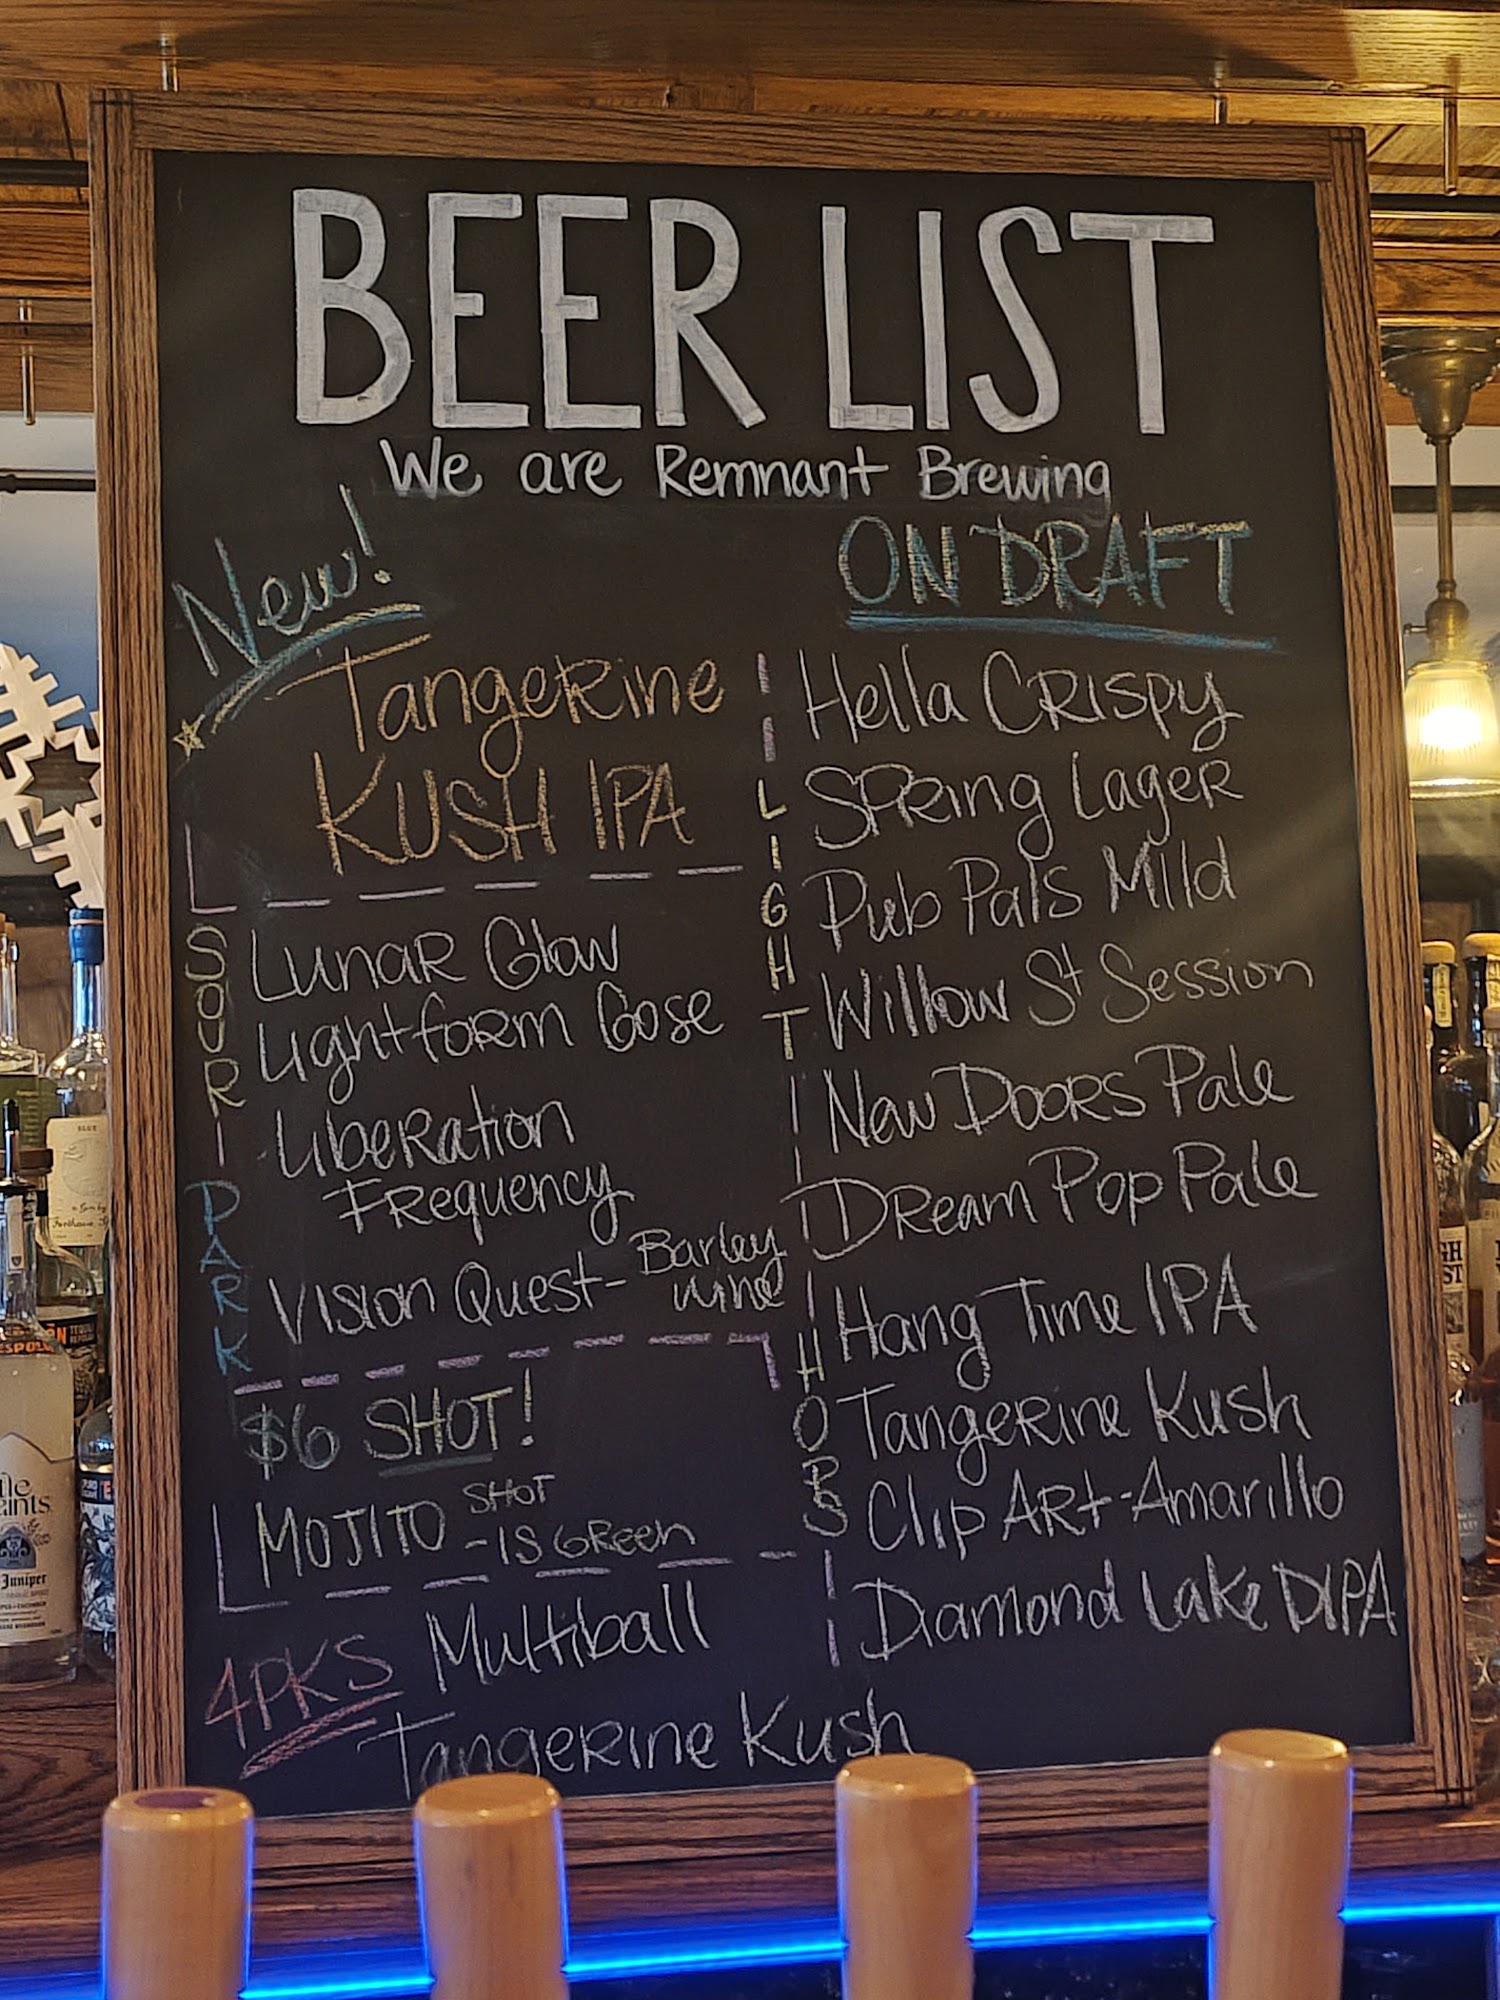 BEER LIST
We are Remnant Brewing
New!
Tangerine
Kush IPA
SOUR
Lunar Glow
Lightform Gose
Liberation
Frequency
DARK
Vision Quest - Barley
wine
$6 SHOT!
MOJITO SHOT
- IS GREEN
4PKS
Multiball
Tangerine Kush
ON DRAFT
LIGHT
Hella Crispy
Spring Lager
Pub Pals Mild
Willow St Session
New Doors Pale
Dream Pop Pale
HOPS
Hang Time IPA
Tangerine Kush
Clip Art - Amarillo
Diamond Lake DIPA
Juniper